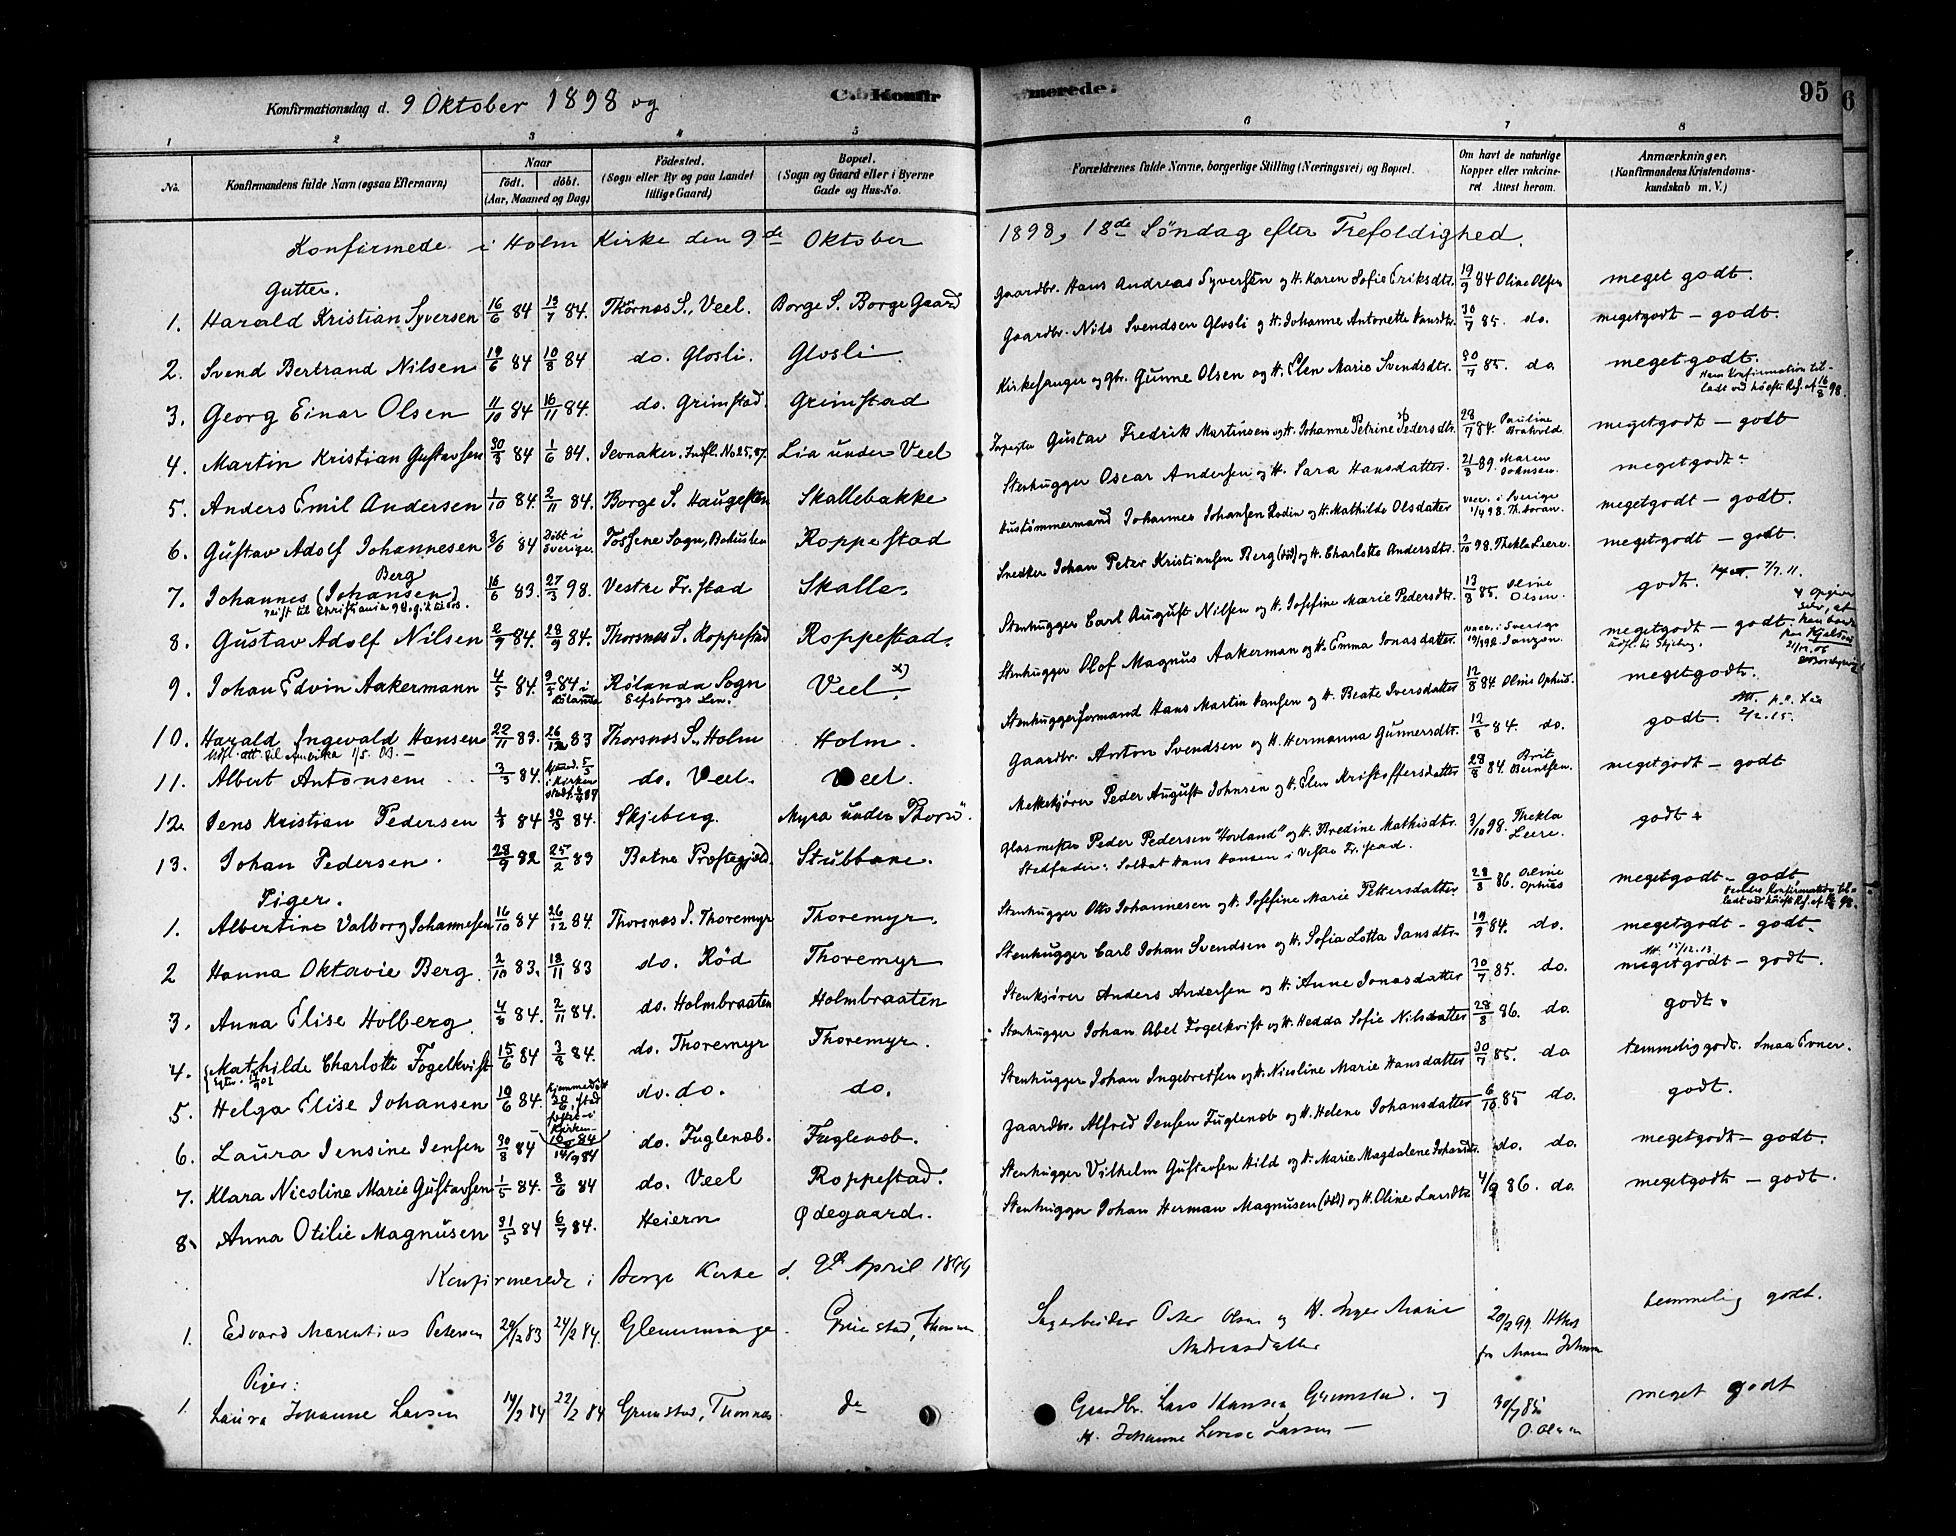 Konfirmationsdag d. 9 Oktober 1898 og C. Konfirmerede. 95
1 2 3 4 5 6 7 8
No. Konfirmandens fulde Navn (ogsaa Efternavn) Naar født. døbt. (Aar, Maaned og Dag) Fødested. (Sogn eller By og paa Landet tillige Gaard) Bopæl. (Sogn og Gaard eller i Byerne Gade og Hus-No. Forældrenes fulde Navne, borgerlige Stilling (Næringsvei) og Bopæl. Om havt de naturlige Kopper eller vakcineret. Attest herom. Anmærkninger. (Konfirmandens Kristendomskundskab m. V.)
Konfirmede i Holm Kirke den 9de Oktober 1898, 18de Søndag efter Trefoldighed.
Gutter.
1. Harald Kristian Syversen 16/6 84 13/7 84. Thornæs S., Veel. Borge S. Borge Gaard Gaardbr. Hans Andreas Syversen og H. Karen Sofie Eriksdtr. 19/9 84 Oline Olsen meget godt.
2. Svend Bertrand Nilsen 19/6 84 10/8 84 do. Glosli. Glosli. Gaardbr. Nils Svendsen Glosli og H. Johanne Antonette Hansdtr. 30/7 85. do. megetgodt – godt.
3. Georg Einar Olsen 11/10 84 16/11 84. do. Grimstad. Grimstad Kirkesanger og Gbr. Gunne Olsen og H. Elen Marie Svendsdtr. 30/7 85. do meget godt.
4. Martin Kristian Gustavsen 30/3 84 1/6 84. Jevnaker. Indfl. No 25, 87. Lia under Veel Gustav Fredrik Martinsen og H. Johanne Petrine Pedersdtr. 28/7 84. Pauline megetgodt – godt
5. Anders Emil Andersen 1/10 84. 2/11 84. Borge S. Haugesten Skallebakke Stenhugger Oscar Andersen og H. Sara Hansdatter. 21/8 89. Maren Johnsen. megetgodt.
6. Gustav Adolf Johannesen 3/6 84 Døbt i Sverige. Tossene Sogn, Bohuslen Roppestad Hustømmermand Johannes Johansen Rodin og H. Mathilde Olsdatter vacc. i Sverige 1/4 98. megetgodt – godt.
7. Johannes (Johansen) Berg 16/6 83. 27/3 98. Vestre Fr.stad Skalle. Snedker Johan Peter Kristiansen Berg (død) og H. Charlotte Andersdtr. 3/10 98. Thekla Leere. megetgodt – godt.
8. Gustav Adolf Nilsen 2/9 84. 28/9 84. Thorsnæs S. Roppestad Roppestad. Stenhugger Carl August Nilsen og H. Josefine Marie Pedersdtr. 13/8 85. Oline Olsen. godt. 7/7. 11.
9. Johan Edvin Aakermann 4/5 84. 9/5 84 i Rølanda Rølanda Sogn Elfsborgs Len. Veel x) Stenhugger Olof Magnus Aakerman og H. Emma Jonasdatter. vacc. i Sverige megetgodt – godt.
10. Harald Ingevald Hansen 22/11 83. 26/12 83 Thorsnæs S., Holm Holm. Stenhuggerformand Hans Martin Hansen og H. Beate Iversdatter. 12/8 84. Oline Ophus. megetgodt.
Udfl. att. til Amerika 1/5.
11. Albert Antonsen 3/3 84. do. Veel. Veel. Gaardbr. Anton Svendsen og H. Hermanna Gunnersdtr. 12/8 84. do. godt. 2/12. 15.
12. Jens Kristian Pedersen 4/3 84 30/3 84. Skjeberg. Myra under Thorsø. Melkekjører Peder August Johnsen og H. Elen Kristoffersdatter 28/8 84. Brit Berntsen. megetgodt – godt
13. Johan Pedersen. 28/9 82 25/2 83 Botne Præstegjæld. Stubbane. Glasmester Peder Pedersen "Hovland" og H. Bredine Mathisdtr. 3/10 98. Thekla Leere. godt.
Stedfader: Soldat Hans Hansen i Vestre Fr.stad.
Piger.
1. Albertine Valborg Johannesen 16/10 84 26/12 84. Thorsnæs S. Thoremyr Thoremyr. Stenhugger Otto Johannesen og H. Josefine Marie Pettersdatter 28/8 86. Oline Ophus megetgodt – godt
2 Hanna Oktavie Berg. 2/10 83. 18/11 83 do. Rød Thoremyr Stenhugger Carl Johan Svendsen og H. Sofia Lotta Jansdtr. 19/9 84. do. megetgodt – godt.
3. Anna Elise Holberg. 4/8 84. 2/11 84. do. Holmbraaten Holmbraaten Stenkjører Anders Andersen og H. Anne Jonasdatter 30/7 85. do. megetgodt – godt.
4. Mathilde Charlotte Fogelkvist 15/6 84 3/8 84. do. Thoremyr Thoremyr. Stenhugger Johan Abel Fogelkvist og H. Hedda Sofie Nilsdatter 28/8 86. do. godt.
5. Helga Elise Johansen 19/6 84. do. do. do. Stenhugger Johan Ingebretsen og H. Nicoline Marie Hansdatter 30/7 85. do temmelig godt. Smaa Evner.
6. Laura Jensine Jensen 30/8 84 14/9 84 do. Fuglenæb. Fuglenæb. Gaardbr. Alfred Jensen Fuglenæb og H. Helene Johansdatter 6/10. 85 do. godt.
7. Klara Nicoline Marie Gustavsen 1/5 84. 8/6 84 do. Veel Roppestad. Stenhugger Vilhelm Gustavsen Hild og H. Marie Magdalene Johansdtr. do. do. megetgodt – godt.
8. Anna Otilie Magnusen 31/5 84 6/7 84. Heiern Ødegaard. Stenhugger Johan Herman Magnusen (død) og H. Oline Larsdtr 4/9 86. do. megetgodt – godt.
Konfirmerede i Borge Kirke d. April 1899
1. Edvard Petersen 29/12 83 24/2 84. Glemminge. Grimstad, Sagarbeider Olsen og H. Inger Marie Andreasdatter 20/2 99. Attest fra Maren Johnsen temmelig godt.
Piger:
1. Laura Johanne Larsen 14/2 84 22/2 84 Grimstad, Thornæs do Gaardbr. Lars Hansen Grimstad. og H. Johanne Lovise Larsen – 30/7 85 O. Olsen meget godt